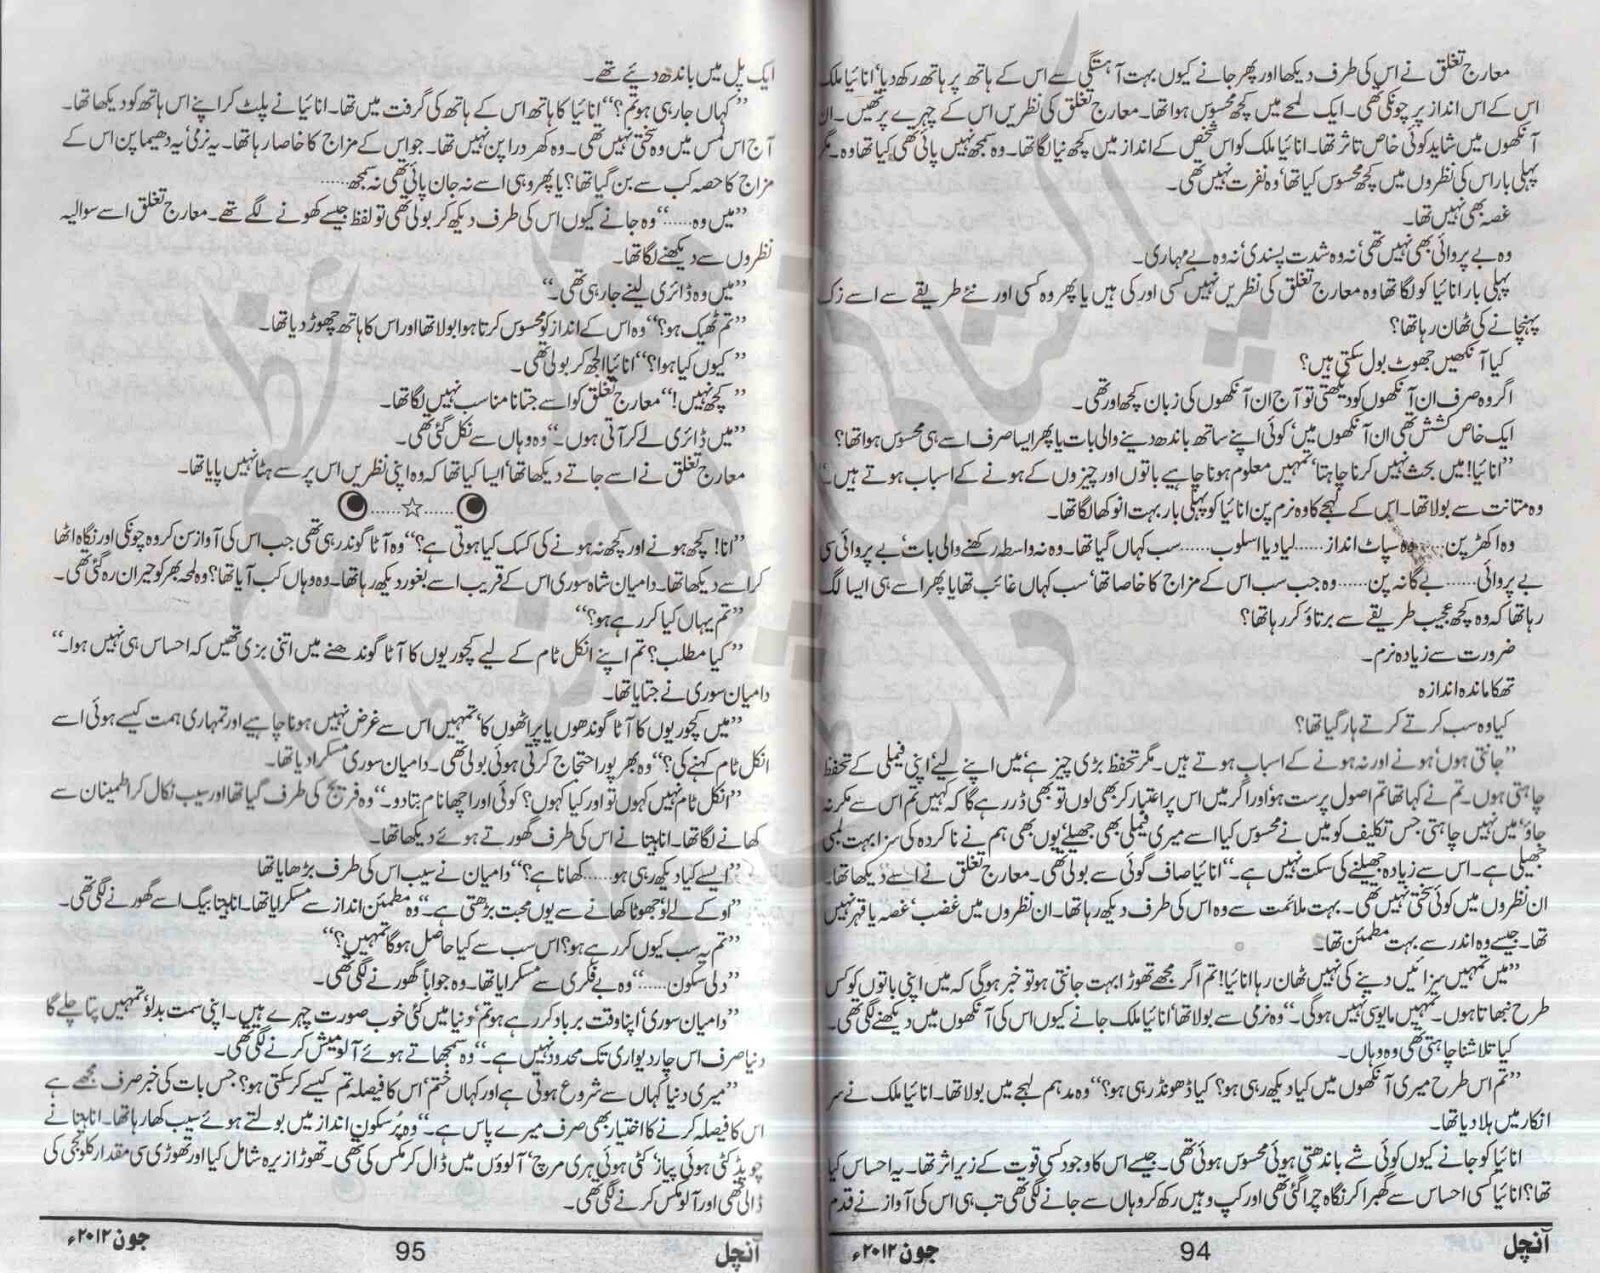 معارج تغلق نے اس کی طرف دیکھا اور پھر جانے کیوں بہت آہستگی سے اس کے ہاتھ پر ہاتھ رکھ دیا، انائیا ملک
اس کے اس انداز پر چونکی تھی۔ ایک لمحے میں کچھ محسوس ہوا تھا۔ معارج تغلق کی نظریں اس کے چہرے پر تھیں۔ ان
آنکھوں میں شاید کوئی خاص تاثر تھا۔ انائیا ملک کو اس شخص کے انداز میں کچھ نیا لگا تھا۔ وہ سمجھ نہیں پائی تھی کیا تھا وہ۔ مگر
پہلی بار اس کی نظروں میں کچھ محسوس کیا تھا، وہ نفرت نہیں تھی۔
غصہ بھی نہیں تھا۔
وہ بے پروائی بھی نہیں تھی، نہ وہ شدت پسندی، نہ وہ بے مہاری۔
پہلی بار انائیا کو لگا تھا وہ معارج تغلق کی نظریں نہیں کسی اور کی ہیں یا پھر وہ کسی اور نئے طریقے سے اسے زک
پہنچانے کی ٹھان رہا تھا؟
کیا آنکھیں جھوٹ بول سکتی ہیں؟
اگر وہ صرف ان آنکھوں کو دیکھتی تو آج ان آنکھوں کی زبان کچھ اور تھی۔
ایک خاص کشش تھی ان آنکھوں میں، کوئی اپنے ساتھ باندھ دینے والی بات یا پھر ایسا صرف اسے ہی محسوس ہوا تھا؟
”انائیا! میں بحث نہیں کرنا چاہتا، تمہیں معلوم ہونا چاہیے باتوں اور چیزوں کے ہونے کے اسباب ہوتے ہیں۔“
وہ متانت سے بولا تھا۔ اس کے لہجے کا وہ نرم پن انائیا کو پہلی بار بہت انوکھا لگا تھا۔
وہ اکھڑ پن...... وہ سپاٹ انداز...... لیا دیا اسلوب...... سب کہاں گیا تھا۔ وہ نہ واسطہ رکھنے والی بات، بے پروائی سی
بے پروائی...... بے گانہ پن...... وہ جب سب اس کے مزاج کا خاصا تھا، سب کہاں غائب تھا یا پھر اسے ہی ایسا لگ
رہا تھا کہ وہ کچھ عجیب طریقے سے برتاؤ کر رہا تھا؟
ضرورت سے زیادہ نرم۔
تھکا ماندہ اندازہ
کیا وہ سب کرتے کرتے ہار گیا تھا؟
”جانتی ہوں، ہونے اور نہ ہونے کے اسباب ہوتے ہیں۔ مگر تحفظ بڑی چیز ہے، میں اپنے لیے، اپنی فیملی کے تحفظ
چاہتی ہوں۔ تم نے کہا تھا تم اصول پرست ہو، اور اگر میں اس پر اعتبار کر بھی لوں تو بھی ڈر رہے گا کہ کہیں تم اس سے مکر نہ
جاؤ، میں نہیں چاہتی جس تکلیف کو میں نے محسوس کیا اسے میری فیملی بھی جھیلے، یوں بھی ہم نے ناکردہ کی سزا بہت لمبی
جھیلی ہے۔ اس سے زیادہ جھیلنے کی سکت نہیں ہے۔“ انائیا صاف گوئی سے بولی تھی۔ معارج تغلق نے اسے دیکھا تھا۔
ان نظروں میں کوئی سختی نہیں تھی۔ بہت ملائمت سے وہ اس کی طرف دیکھ رہا تھا۔ ان نظروں میں غضب، غصہ یا قہر نہیں
تھا۔ جیسے وہ اندر سے بہت مطمئن تھا۔
”میں تمہیں سزائیں دینے کی نہیں ٹھان رہا انائیا! تم اگر مجھے تھوڑا بہت جانتی ہو تو خبر ہوگی کہ میں اپنی باتوں کو کس
طرح نبھاتا ہوں۔ تمہیں مایوسی نہیں ہوگی۔“ وہ نرمی سے بولا تھا، انائیا ملک جانے کیوں اس کی آنکھوں میں دیکھنے لگی تھی۔
کیا تلاشنا چاہتی تھی وہ وہاں۔
”تم اس طرح میری آنکھوں میں کیا دیکھ رہی ہو؟ کیا ڈھونڈ رہی ہو؟“ وہ مدہم لہجے میں بولا تھا۔ انائیا ملک نے سر
انکار میں ہلا دیا تھا۔
انائیا کو جانے کیوں کوئی شے باندھتی ہوئی محسوس ہوئی تھی۔ جیسے اس کا وجود کسی قوت کے زیر اثر تھا۔ یہ احساس کیا
تھا؟ انائیا کسی احساس سے گھبرا کر نگاہ چرا گئی تھی اور کپ وہیں رکھ کر وہاں سے جانے لگی تھی تب ہی اس کی آواز نے قدم
آنچل 94 جون ۲۰۱۲ء
ایک پل میں باندھ دیئے تھے۔
”کہاں جا رہی ہو تم؟“ انائیا کا ہاتھ اس کے ہاتھ کی گرفت میں تھا۔ انائیا نے پلٹ کر اپنے اس ہاتھ کو دیکھا تھا۔
آج اس لمس میں وہ سختی نہیں تھی۔ وہ کھردرا پن نہیں تھا۔ جو اس کے مزاج کا خاصا رہا تھا۔ یہ نرمی، یہ دھیما پن اس کے
مزاج کا حصہ کب سے بن گیا تھا؟ یا پھر وہی اسے نہ جان پائی تھی نہ سمجھ......
”میں وہ......“ وہ جانے کیوں اس کی طرف دیکھ کر بولی تھی تو لفظ جیسے کھونے لگے تھے۔ معارج تغلق اسے سوالیہ
نظروں سے دیکھنے لگا تھا۔
”میں وہ ڈائری لینے جا رہی تھی۔“
”تم ٹھیک ہو؟“ وہ اس کے انداز کو محسوس کرتا ہوا بولا تھا اور اس کا ہاتھ چھوڑ دیا تھا۔
”کیوں کیا ہوا؟“ انائیا الجھ کر بولی تھی۔
”کچھ نہیں!“ معارج تغلق کو اسے جتانا مناسب نہیں لگا تھا۔
”میں ڈائری لے کر آتی ہوں۔“ وہ وہاں سے نکل گئی تھی۔
معارج تغلق نے اسے جاتے دیکھا تھا، ایسا کیا تھا کہ وہ اپنی نظریں اس پر سے ہٹا نہیں پایا تھا۔
......☆......
”انا! کچھ ہونے اور کچھ نہ ہونے کی کسک کیا ہوتی ہے؟“ وہ آٹا گوندر رہی تھی جب اس کی آواز سن کر وہ چونکی اور نگاہ اٹھا
کر اسے دیکھا تھا۔ دامیان شاہ سوری اس کے قریب اسے بغور دیکھ رہا تھا۔ وہ وہاں کب آیا تھا؟ وہ لمحہ بھر کو حیران رہ گئی تھی۔
”تم یہاں کیا کر رہے ہو؟“
”کیا مطلب؟ تم اپنے انکل ٹام کے لیے کچوریوں کا آٹا گوندھنے میں اتنی بزی تھیں کہ احساس ہی نہیں ہوا۔“
دامیان سوری نے جتایا تھا۔
”میں کچوریوں کا آٹا گوندھوں یا پراٹھوں کا، تمہیں اس سے غرض نہیں ہونا چاہیے اور تمہاری ہمت کیسے ہوئی اسے
انکل ٹام کہنے کی؟“ وہ بھرپور احتجاج کرتی ہوئی بولی تھی۔ دامیان سوری مسکرا دیا تھا۔
”انکل ٹام نہیں کہوں تو اور کیا کہوں؟ کوئی اور اچھا نام بتا دو۔“ وہ فریج کی طرف گیا تھا اور سیب نکال کر اطمینان سے
کھانے لگا تھا۔ انابیتا نے اس کی طرف گھورتے ہوئے دیکھا تھا۔
”ایسے کیا دیکھ رہی ہو...... کھانا ہے؟“ دامیان نے سیب اس کی طرف بڑھایا تھا
”او کے لے لو، جھوٹا کھانے سے یوں محبت بڑھتی ہے۔“ وہ مطمئن انداز سے مسکرایا تھا۔ انابیتا بیگ اسے گھورنے لگی تھی۔
”تم یہ سب کیوں کر رہے ہو؟ اس سب سے کیا حاصل ہوگا تمہیں؟“
”دلی سکون......“ وہ بے فکری سے مسکرایا تھا۔ وہ جواباً گھورنے لگی تھی۔
”دامیان سوری، اپنا وقت برباد کر رہے ہو تم، دنیا میں کئی خوب صورت چہرے ہیں۔ اپنی سمت بدلو، تمہیں پتا چلے گا
دنیا صرف اس چار دیواری تک محدود نہیں ہے۔“ وہ سمجھاتے ہوئے آلو میش کرنے لگی تھی۔
”میری دنیا کہاں سے شروع ہوتی ہے اور کہاں ختم، اس کا فیصلہ تم کیسے کر سکتی ہو؟ جس بات کی خبر صرف مجھے ہے
اس کا فیصلہ کرنے کا اختیار بھی صرف میرے پاس ہے۔“ وہ پُرسکون انداز میں بولتے ہوئے سیب کھا رہا تھا۔ انابیتا نے
چوپڈ کٹی ہوئی پیاز، کٹی ہوئی ہری مرچ، آلوؤں میں ڈال کر مکس کی تھی۔ تھوڑا زیرہ شامل کیا اور تھوڑی سی مقدار کلونجی کی
ڈالی تھی اور آلو مکس کرنے لگی تھی۔
آنچل 95 جون ۲۰۱۲ء